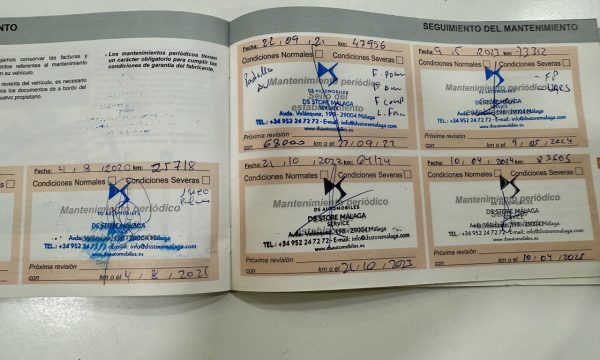 SEGUIMIENTO DEL MANTENIMIENTO
conservar las facturas y
referentes al mantenimiento
su vehículo.
reventa del vehículo, es necesario
los documentos de a bordo del
nuevo propietario.
• Los mantenimientos periódicos tienen
un carácter obligatorio para cumplir las
condiciones de garantía del fabricante.
Fecha: 4, 8, 2020 km: 25718
Condiciones Normales Condiciones Severas
Mantenimiento periódico
DS AUTOMOBILES
DS STORE MÁLAGA
TEL.: +34 952 24 72 72 - E-mail: info@dsstoremalaga.com
www.dsautomobiles.es
Próxima revisión
con km o el 4, 8, 2021
Fecha: 22, 09, 21 km: 47956
Condiciones Normales Condiciones Severas
Mantenimiento periódico
Sello del
establecimiento
DS AUTOMOBILES
DS STORE MÁLAGA
Avda. Velásquez, 198 - 29004 Málaga
TEL.: +34 952 24 72 72 - E-mail: info@dsstoremalaga.com
www.dsautomobiles.es
Próxima revisión
con 68000 km o el 22/09/22
Fecha: 9, 5, 2023 km: 73312
Condiciones Normales Condiciones Severas
Mantenimiento periódico
DS AUTOMOBILES
DS STORE MÁLAGA
SERVICE
Avda. Velásquez, 198 - 29004 Málaga
TEL.: +34 952 24 72 72 - E-mail: info@dsstoremalaga.com
www.dsautomobiles.es
Próxima revisión
con km o el 9, 05, 2024
Fecha: 21, 10, 2022 km:
Condiciones Normales Condiciones Severas
Mantenimiento periódico
DS AUTOMOBILES
DS STORE MÁLAGA
SERVICE
Avda. Velásquez, 198 - 29004 Málaga
TEL.: +34 952 24 72 72 - E-mail: info@dsstoremalaga.com
www.dsautomobiles.es
Próxima revisión
con km o el 21, 10, 2023
Fecha: 10, 04, 2024 km: 83605
Condiciones Normales Condiciones Severas
Mantenimiento periódico
DS AUTOMOBILES
DS STORE MÁLAGA
SERVICE
Avda. Velásquez, 198 - 29004 Málaga
TEL.: +34 952 24 72 72 - E-mail: info@dsstoremalaga.com
www.dsautomobiles.es
Próxima revisión
con km o el 10, 04, 2025